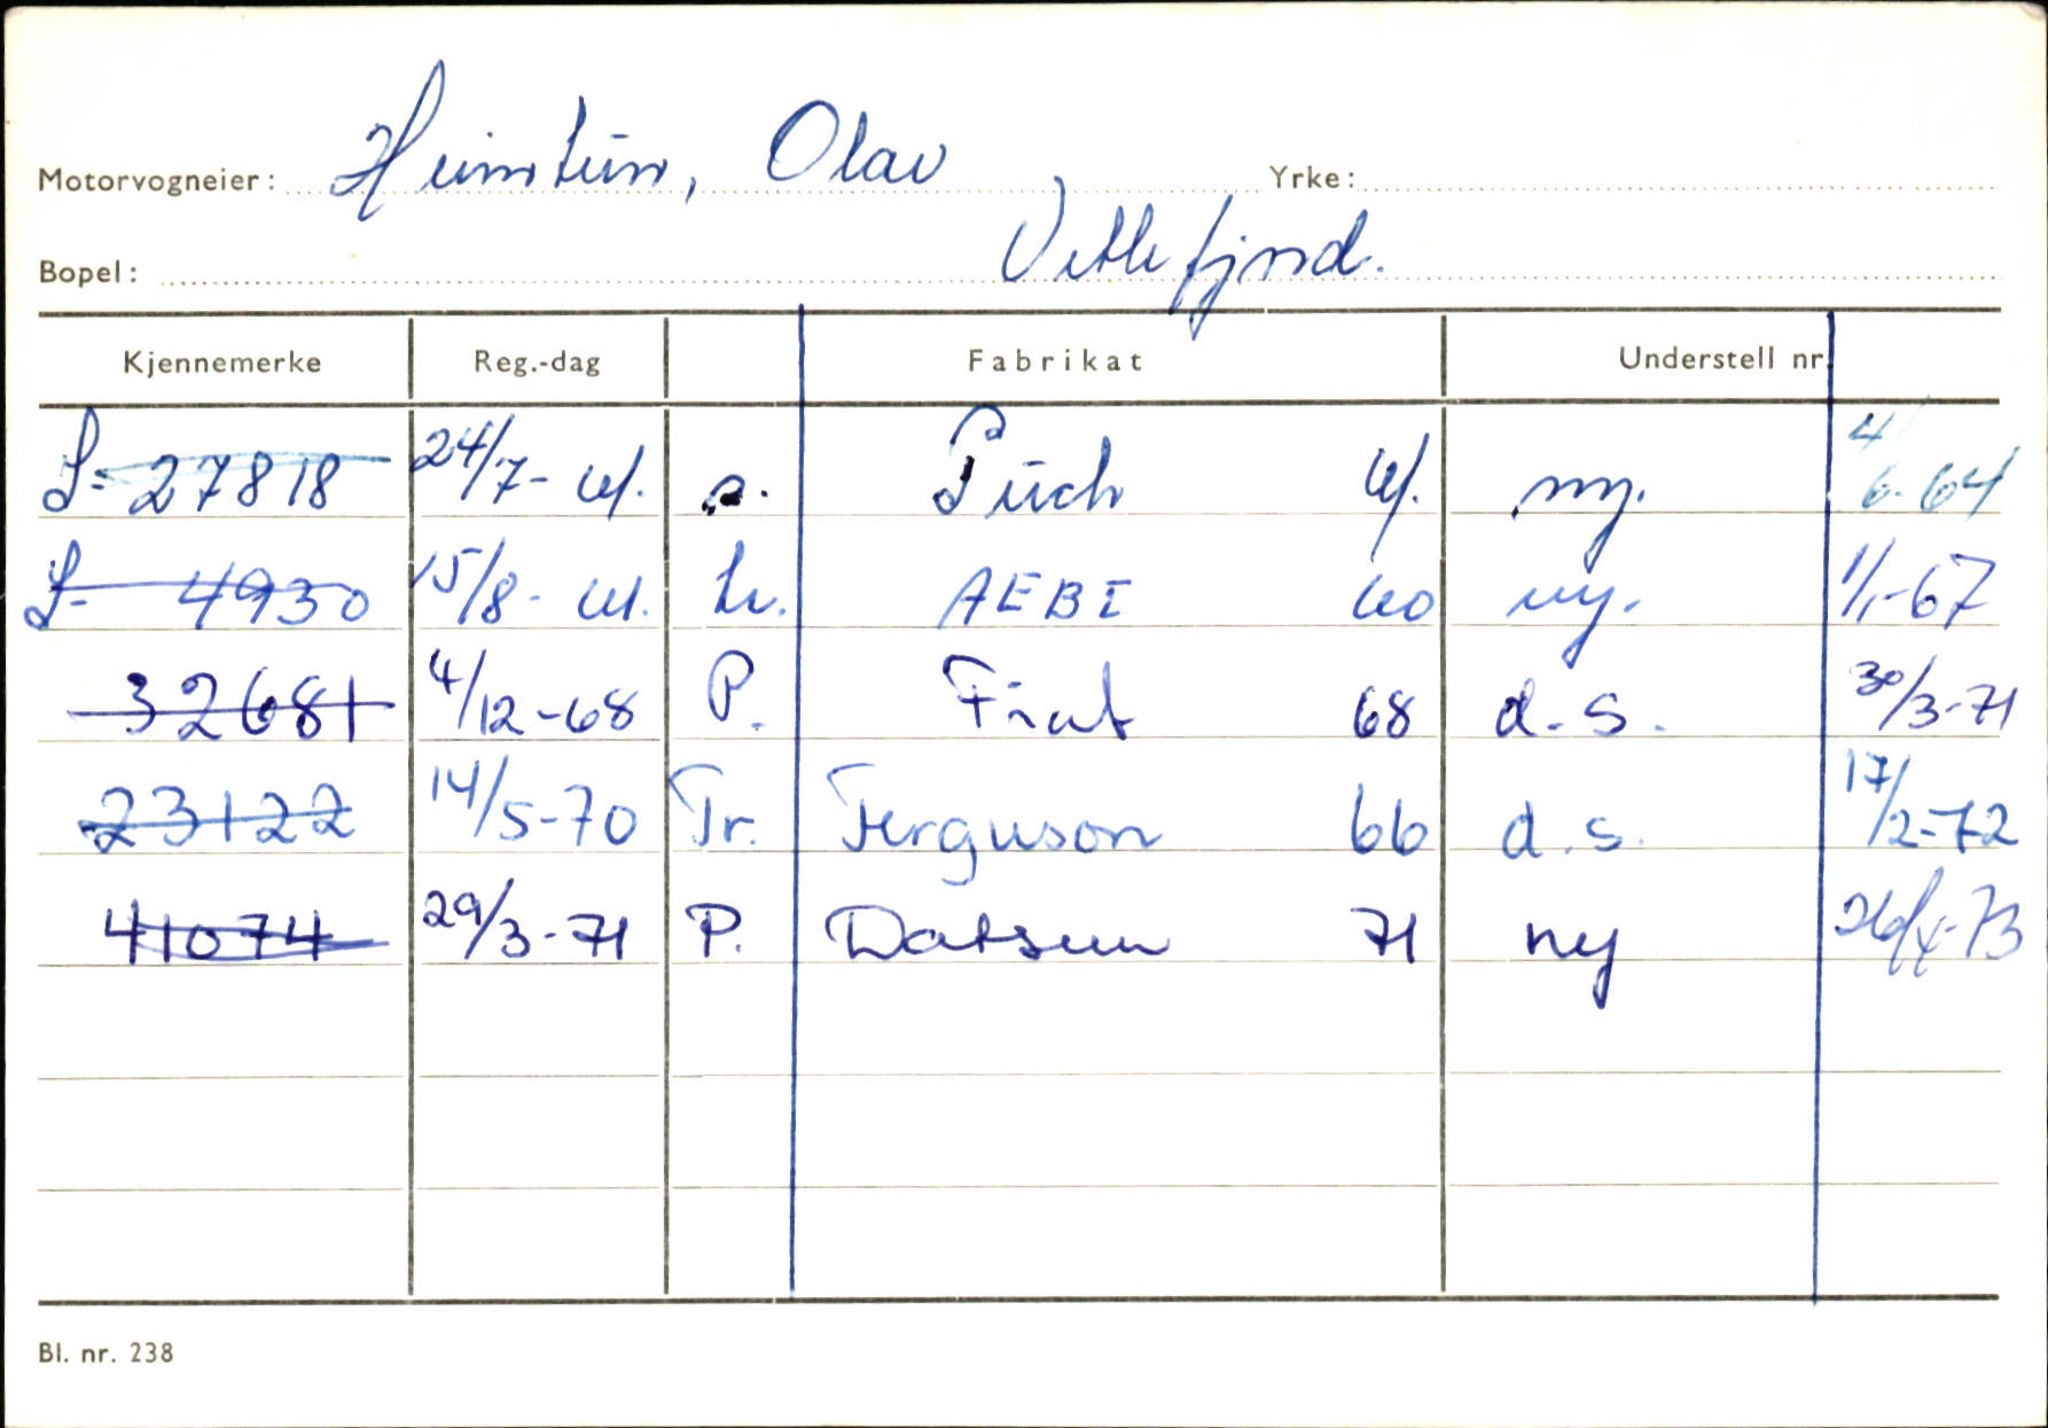 Motorvogneier: Heimtun, Olav Yrke:
Bopel: Vetlefjord.
Kjennemerke Reg.-dag Fabrikat Understell nr.
S- 27818 24/7-61. a. Puch 61. ny. 4/6-64
S- 4930 15/8-61. Lv. AEBI 60 ny. 1/1-67
32681 4/12-68 P. Fiat 68 d.s. 30/3-71
23122 14/5-70 Tr. Ferguson 66 d.s. 17/2-72
41074 29/3-71 P. Datsun 71 ny 26/4-73
Bl. nr. 238